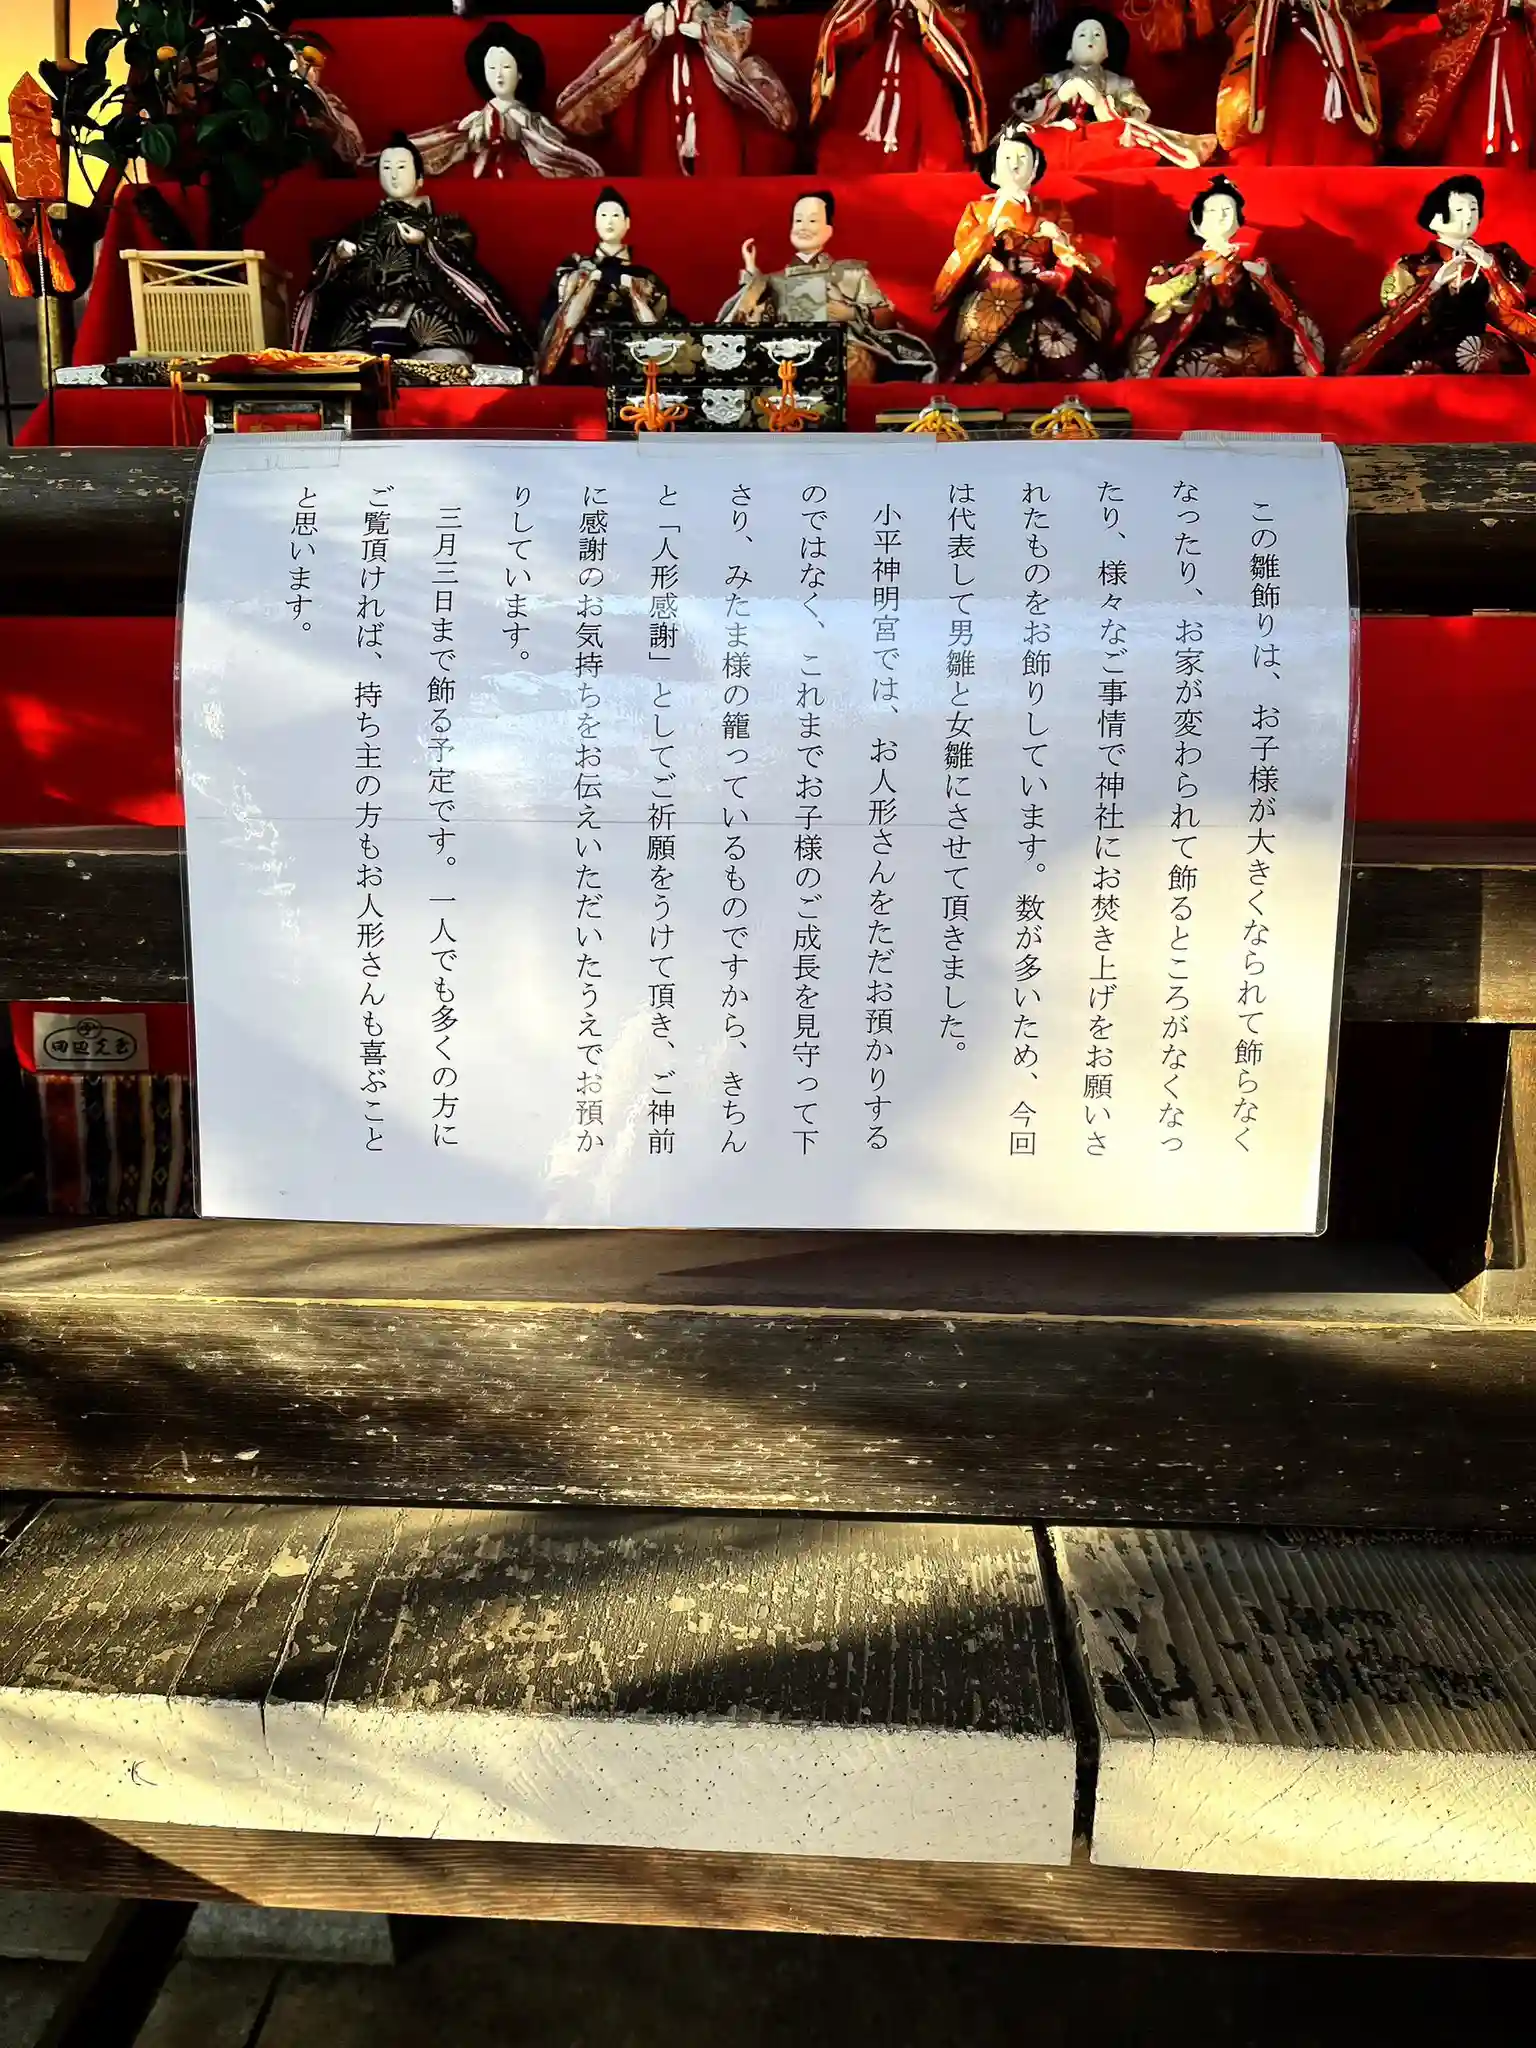 この雛飾りは、お子様が大きくなられて飾らなく
なったり、お家が変わられて飾るところがなくなっ
たり、様々なご事情で神社にお焚き上げをお願いさ
れたものをお飾りしています。数が多いため、今回
は代表して男雛と女雛にさせて頂きました。
小平神明宮では、お人形さんをただお預かりする
のではなく、これまでお子様のご成長を見守って下
さり、みたま様の籠っているものですから、きちん
と「人形感謝」としてご祈願をうけて頂き、ご神前
に感謝のお気持ちをお伝えいただいたうえでお預か
りしています。
三月三日まで飾る予定です。一人でも多くの方に
ご覧頂ければ、持ち主の方もお人形さんも喜ぶこと
と思います。